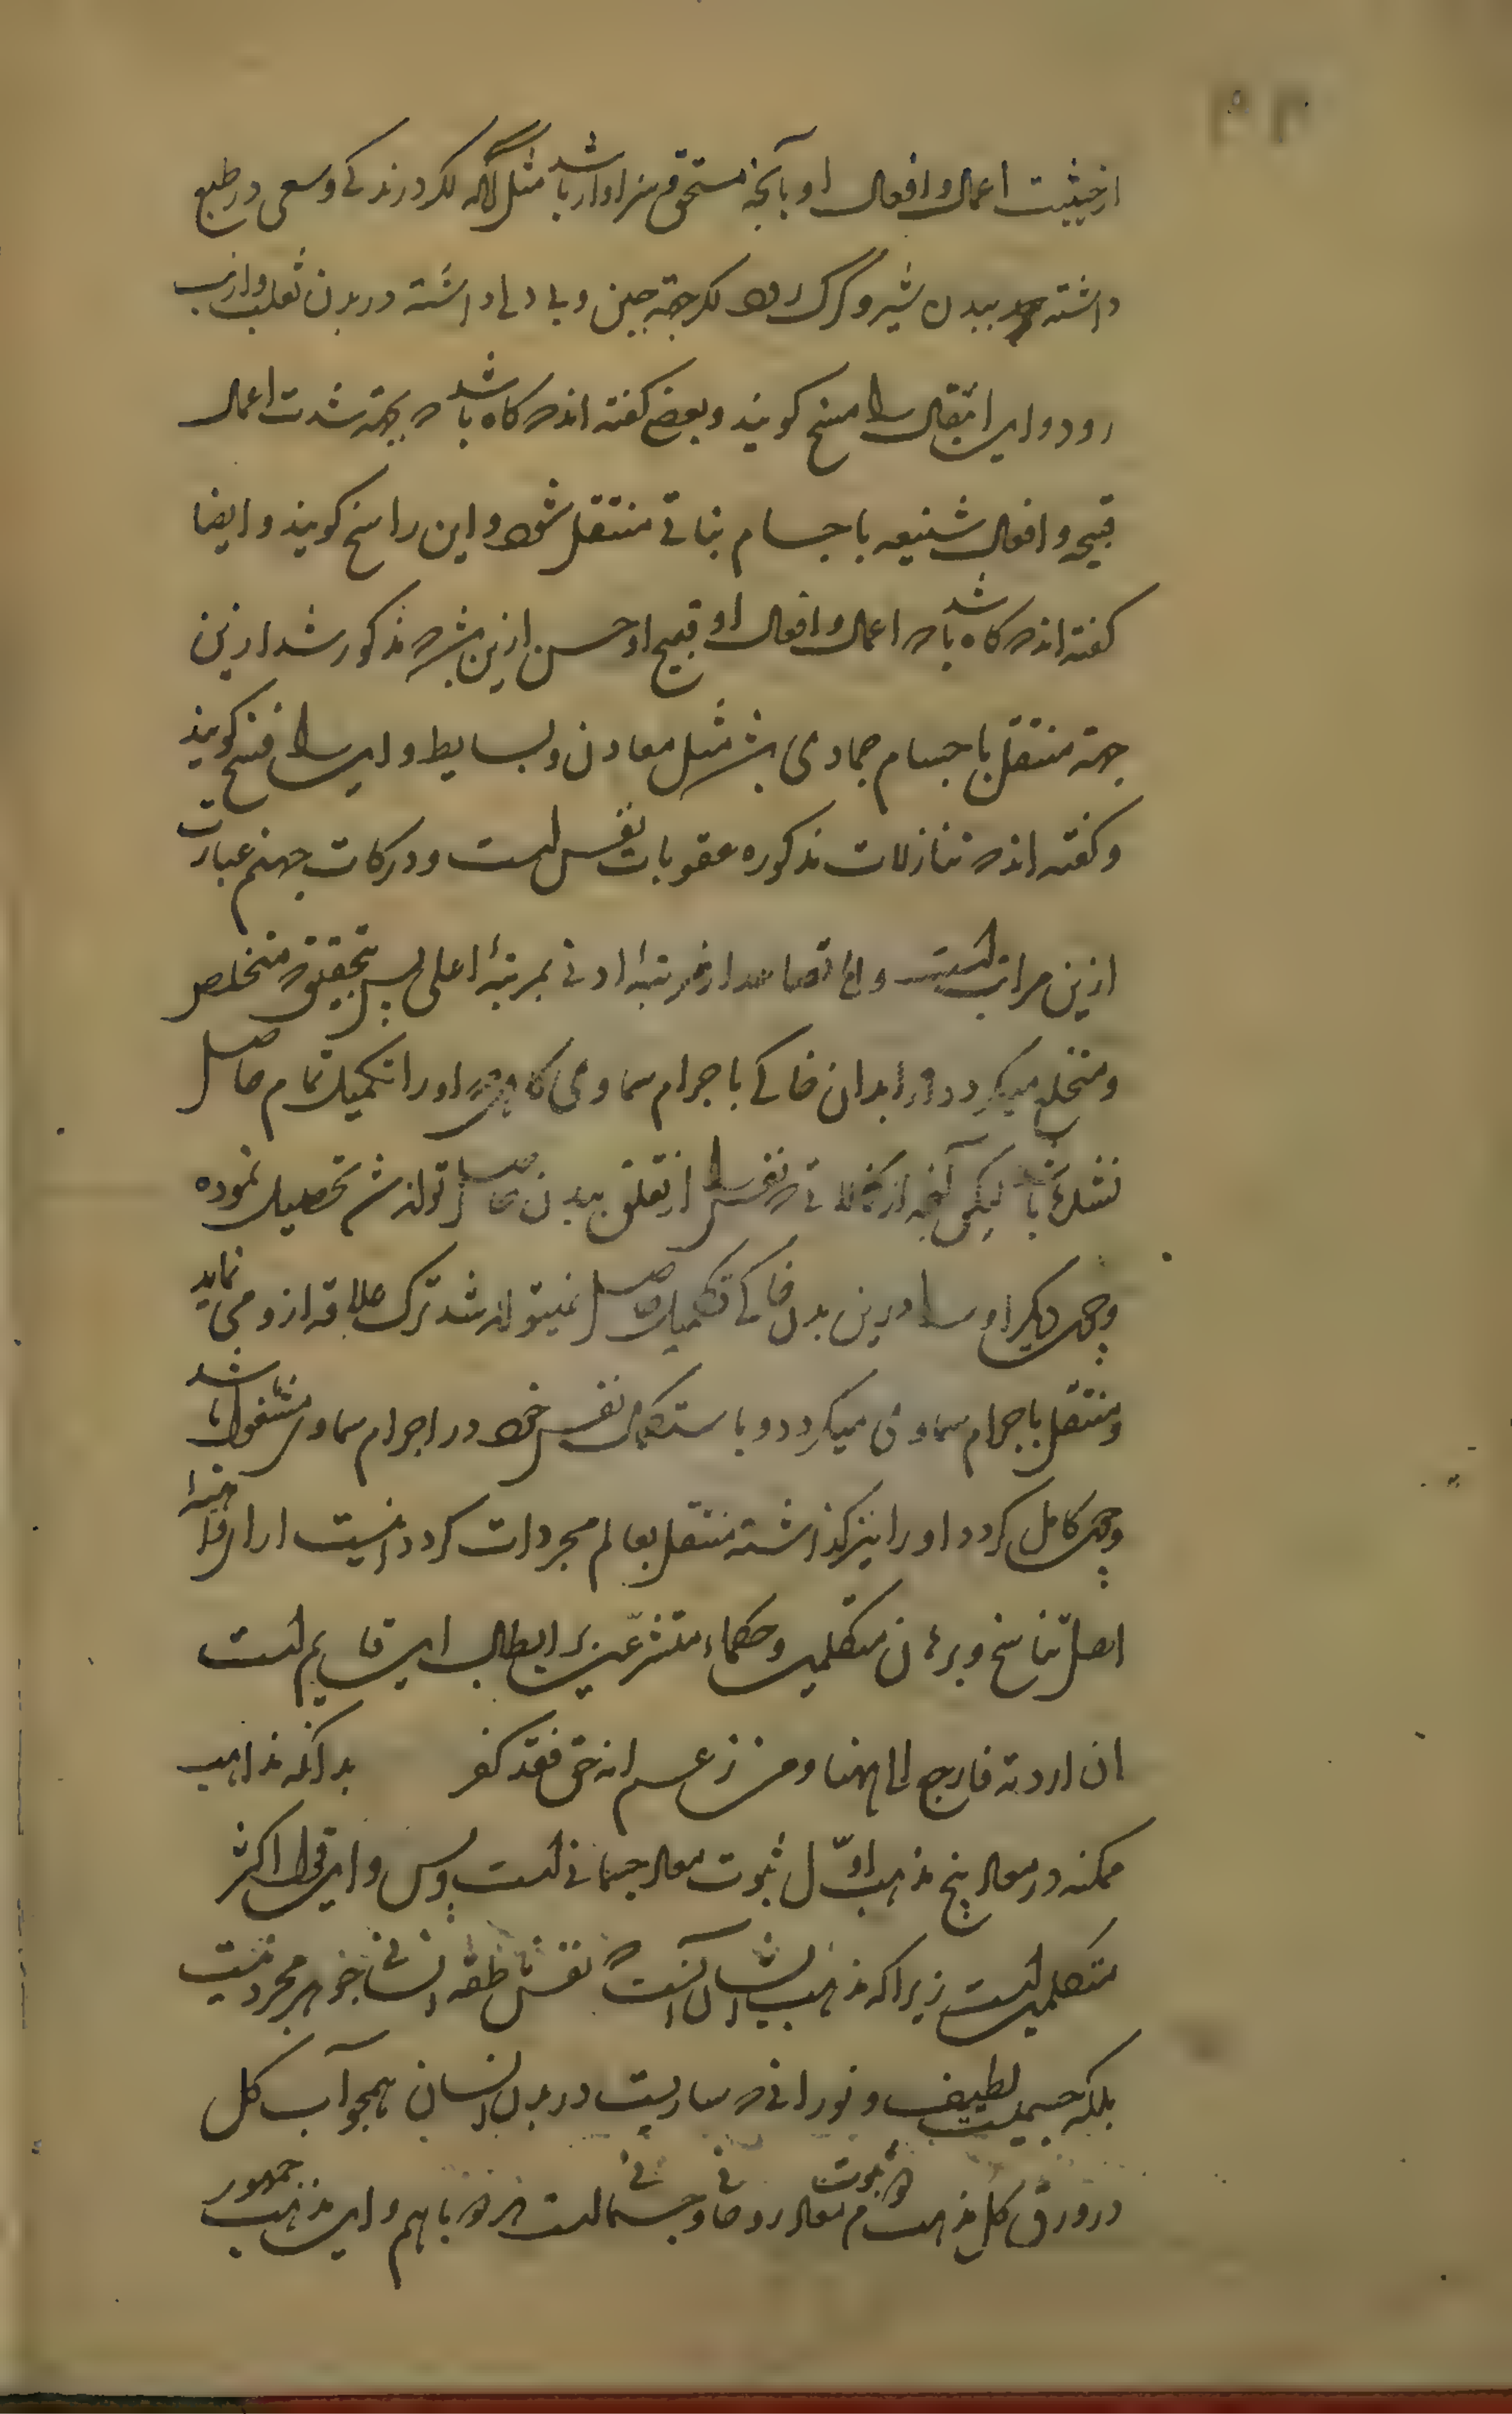 از حیثیت اعمال و افعال او بآنچه مستحق و سزاوار باشد مثل آنکه اگر درندگی و سعی در طبع
داشته ببدن شیر و گرگ رود اگر جهة جبن و بد دلی داشته در بدن ثعلب و ارنب
رود و این انتقال را مسخ کویند و بعضی کفته اند که کاه باشد که بجهة شدت اعمال
قبیحه و افعال شنیعه باجسام نباتی منتقل شود و این را رسخ کویند و ایضا
کفته اند که کاه باشد که اعمال و افعال او قبیح او حسن ازین باشد که مذکور شد ازین
جهة منتقل باجسام جمادی باشد مثل معادن و بسایط و این را فسخ کویند
و کفته اند که تنازلات مذکوره عقوبات نفس است و درکات جهنم عبارت
ازین مراتب است و اما تصاعد از مرتبهٔ ادنی بمرتبهٔ اعلی پس بتحقیق که متخلص
و منخلع میکردد از ابدان خاکی باجرام سماوی کاهی که او را تکمیل تمام حاصل
نشده باشد لیکن آنچه از کمالاتی که نفس را از تعلق ببدن حاصل تواند شد تحصیل نموده
و چون دیکر او را درین بدن خاکی تکمیل حاصل نمیتواند شد ترک علاقه ازو می نماید
و منتقل باجرام سماوی میکردد و باستکمال نفس خود در اجرام سماوی مشغول باشد
و چون کامل کردد او را نیز کذاشته منتقل بعالم مجردات کردد اینست
اهل تناسخ و برهان متکلمین و حکماء متشرعین بر ابطال این قایم است
ان اردته فارجع الی ههنا و من زعم انه حق فقد کفر بدانکه مذاهب
ممکنه در معاد پنج مذهب اول ثبوت معاد جسمانی است و بس و این قول اکثر
متکلمین است زیرا که مذهب ایشان آنست که نفس ناطقه انسانی جوهر مجرد نیست
بلکه جسمیست لطیف و نورانی که ساریست در بدن انسان همچو آب کل
در ورق کل مذهب دوم ثبوت معاد روحانی و جسمانی است هر دو با هم و این مذهب جمهور